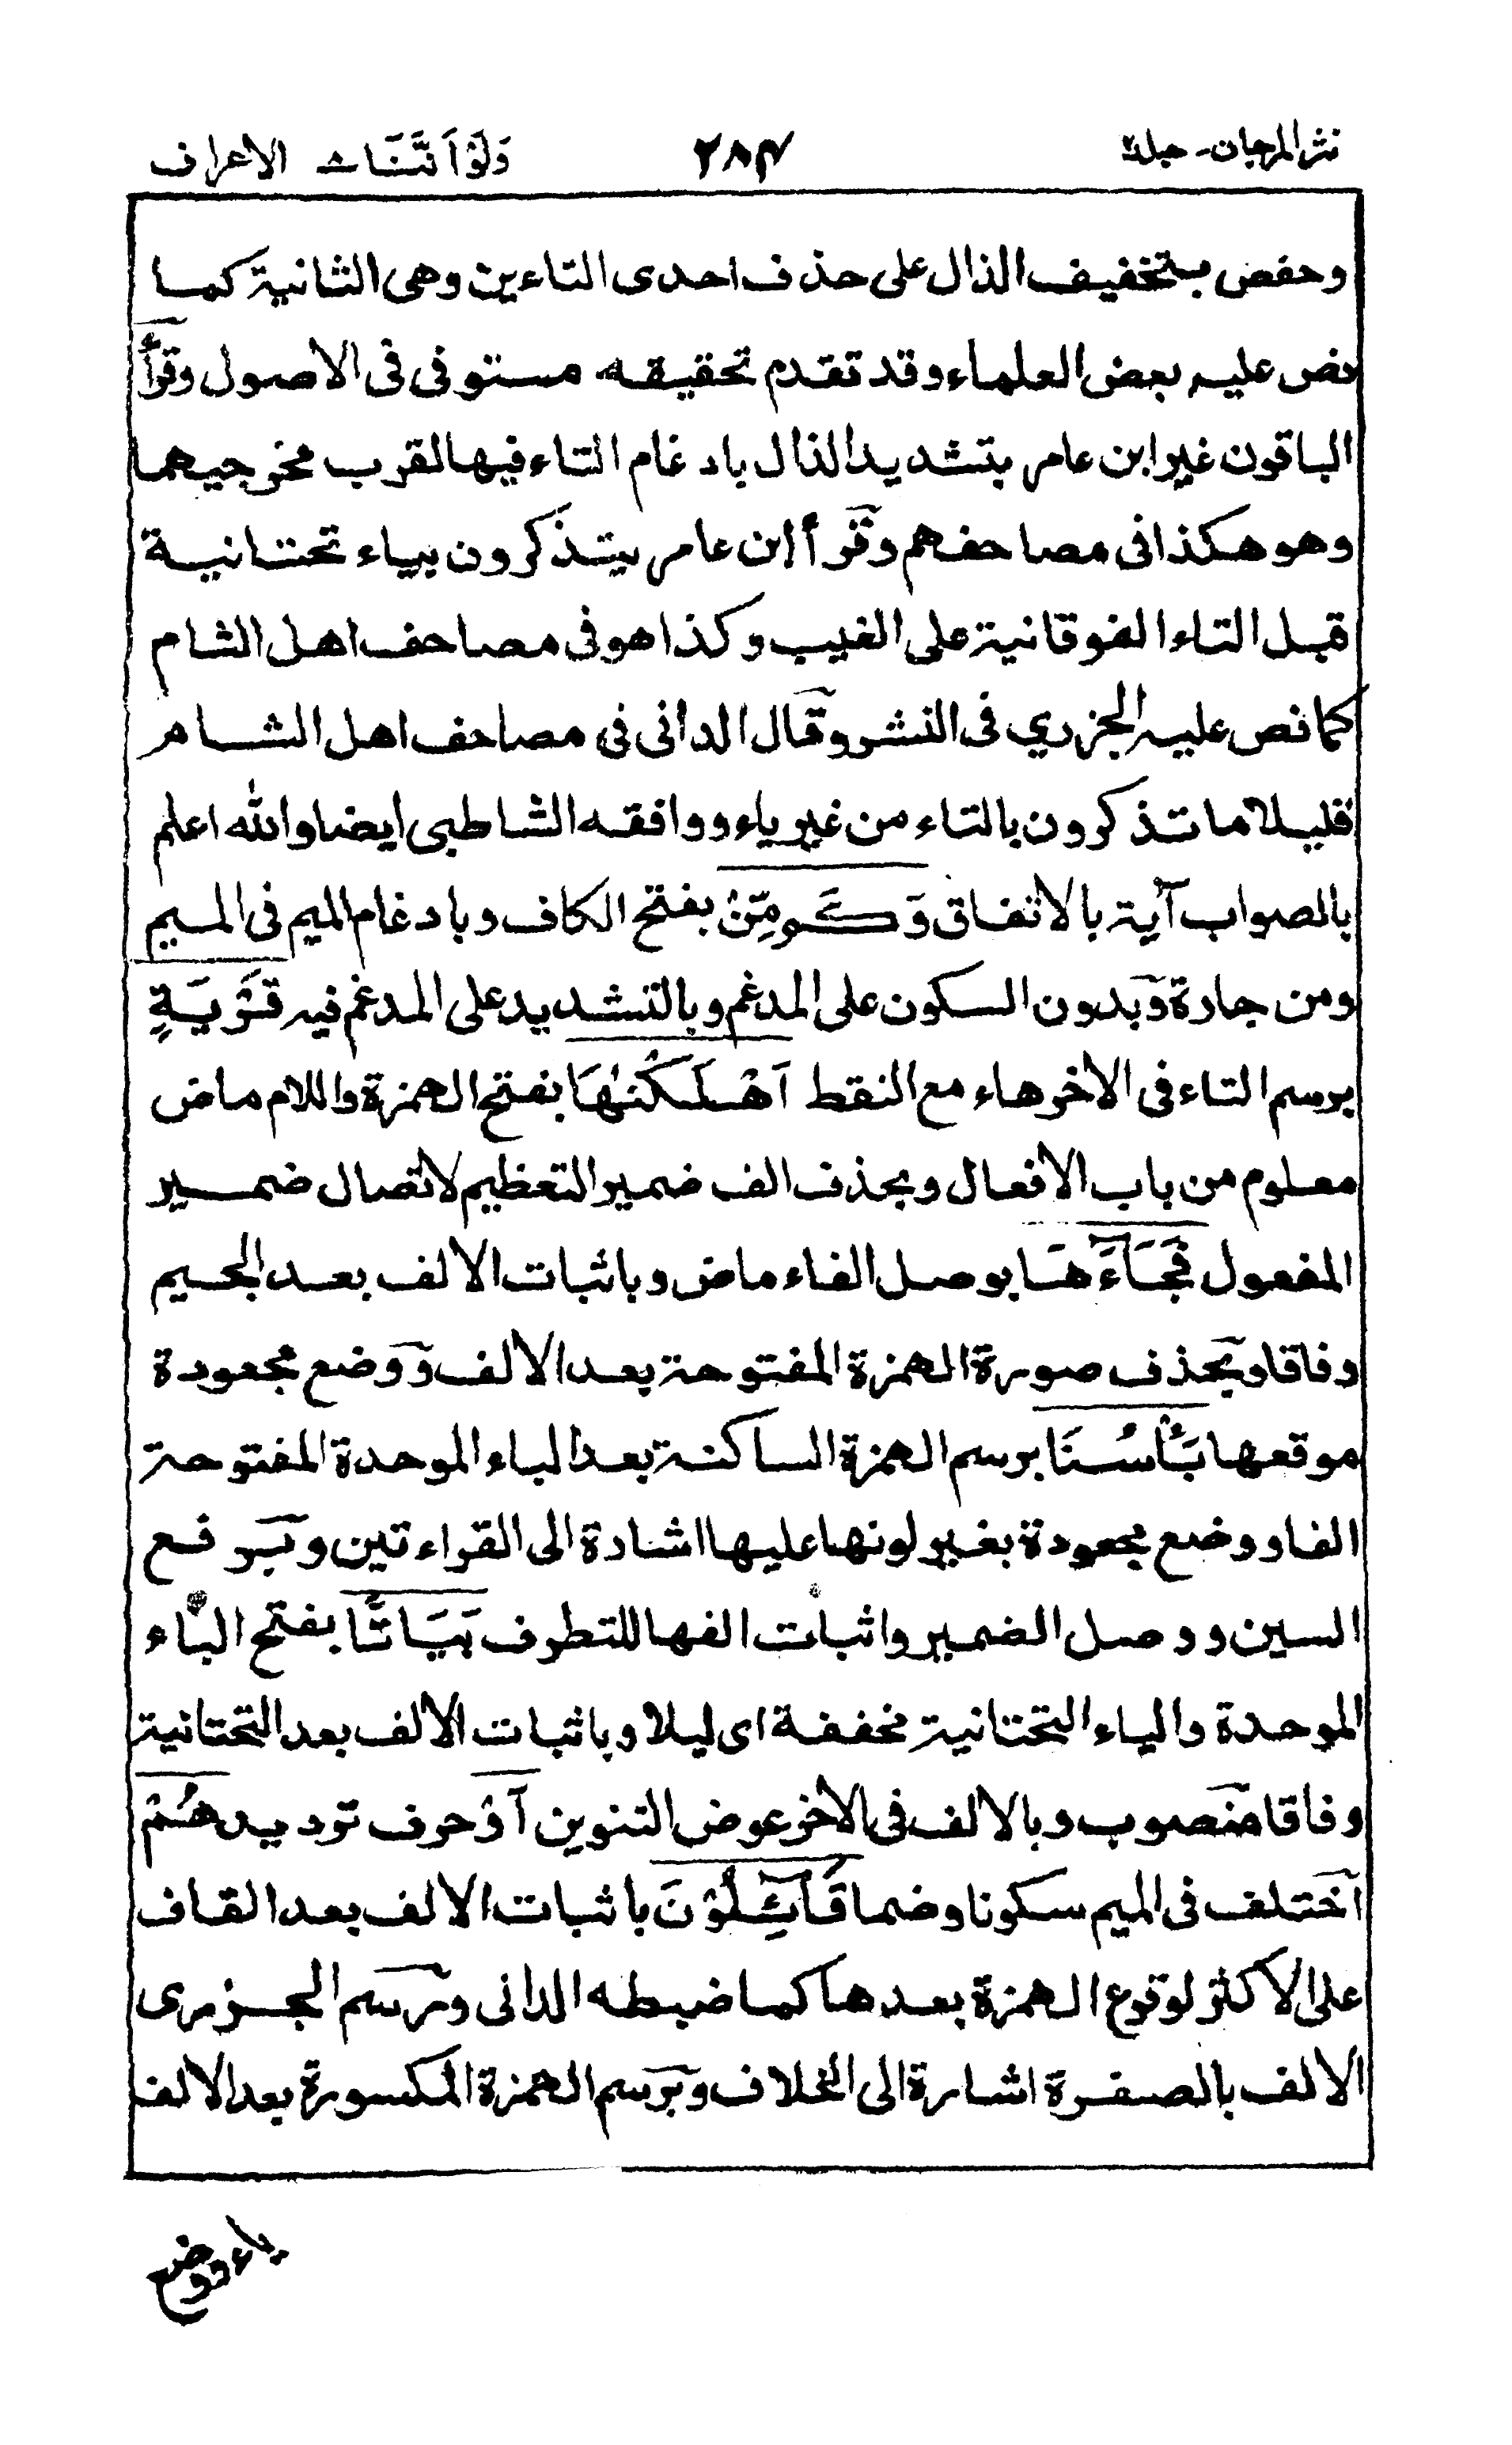 نثر المرجان - جلد ٢
٢٨٤
وَلَوْ اَنَّنَا ث الاعراف
وحفص بتخفيف الذال على حذف احدى التاءين وهى الثانية كما
نص عليه بعض العلماء وقد تقدم تحقيقه مستوفى فى الاصول وقرأ
الباقون غير ابن عامر بتشديد الذال بادغام التاء فيها لقرب مخرجيهما
وهو هكذا فى مصاحفهم وقرأ ابن عامر يتذكرون بياء تحتانية
قبل التاء الفوقانية على الغيب وكذا هو فى مصاحف اهل الشام
كما نص عليه الجزري فى النشر وقال الدانى فى مصاحف اهل الشام
قليلا ما تذكرون بالتاء من غير ياء ووافقه الشاطبى ايضا والله اعلم
بالصواب آية بالاتفاق وَكَمْ مِّنْ بفتح الكاف وبادغام الميم فى الميم
ومن جارة وبدون السكون على المدغم وبالتشديد على المدغم فيه قَرْيَةٍ
برسم التاء فى الاخر هاء مع النقط اَهْلَكْنٰهَا بفتح الهمزة واللام ماض
معلوم من باب الافعال وبحذف الف ضمير التعظيم لاتصال ضمير
المفعول فَجَآءَهَا بوصل الفاء ماض وباثبات الالف بعد الجيم
وفاقا وبحذف صورة الهمزة المفتوحة بعد الالف ووضع مجعودة
موقعها بَأْسُنَا برسم الهمزة الساكنة بعد الباء الموحدة المفتوحة
الفا ووضع مجعودة بغير لونها عليها اشارة الى القراءتين وبرفع
السين ووصل الضمير واثبات الفها للتطرف بَيَاتًا بفتح الباء
الموحدة والياء التحتانية مخففة اى ليلا وباثبات الالف بعد التحتانية
وفاقا منصوب وبالالف فى الاخر عوض التنوين اَوْ حرف ترديد هُمْ
اختلف فى الميم سكونا وضما قَآئِلُوْنَ باثبات الالف بعد القاف
على الاكثر لوقوع الهمزة بعدها كما ضبطه الدانى ورسم الجزرى
الالف بالصفرة اشارة الى الخلاف وبرسم الهمزة المكسورة بعد الالف
ياء ووضع